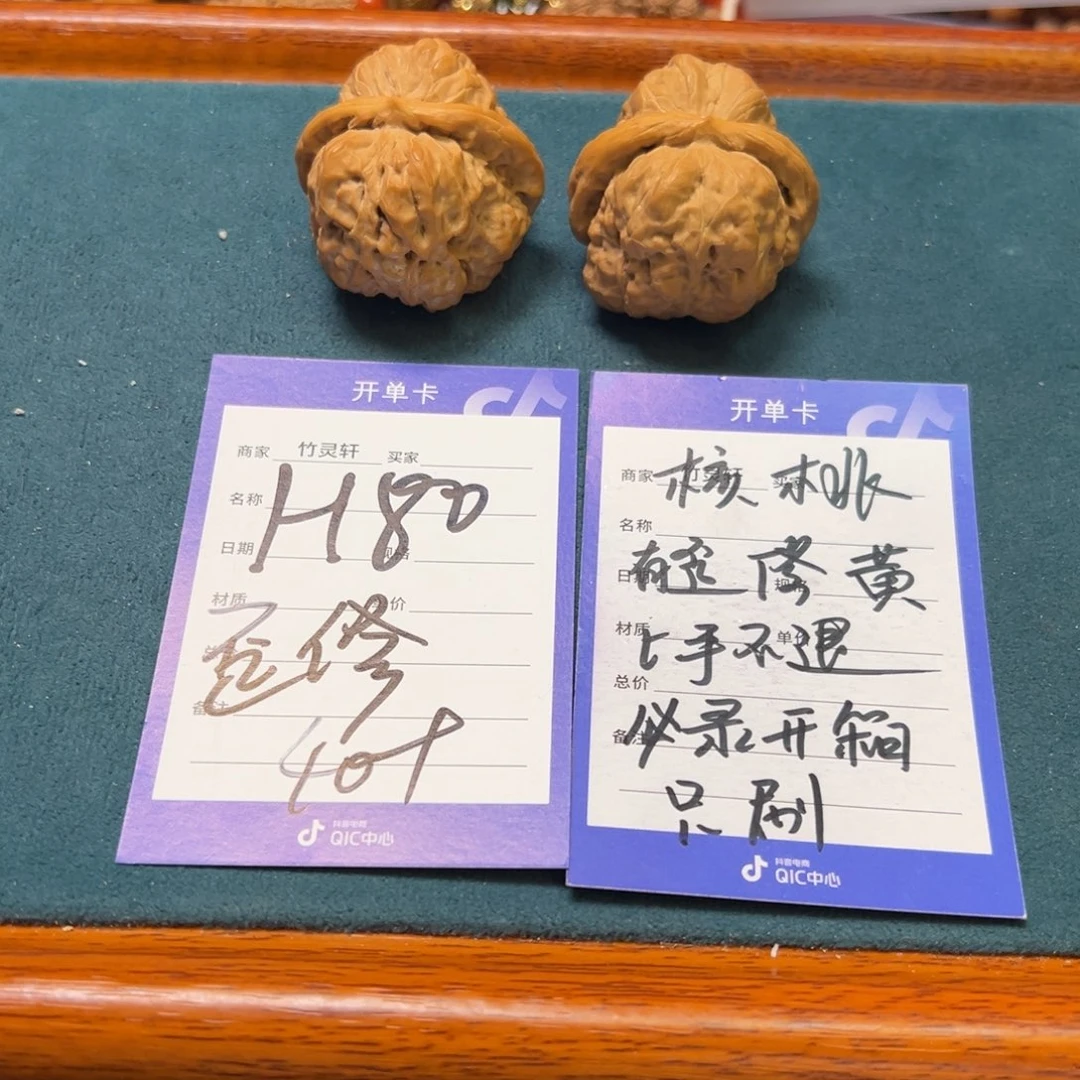 开单卡
商家 竹灵轩 买家
名称
H80
日期 规格
材质 单价
修
备注
40+
抖音电商
QIC中心
开单卡
商家 竹灵轩 买家
核桃
名称
日期 规格
有 修 黄
材质 单价
上手不退
总价
备注
必录开箱
只刷
抖音电商
QIC中心